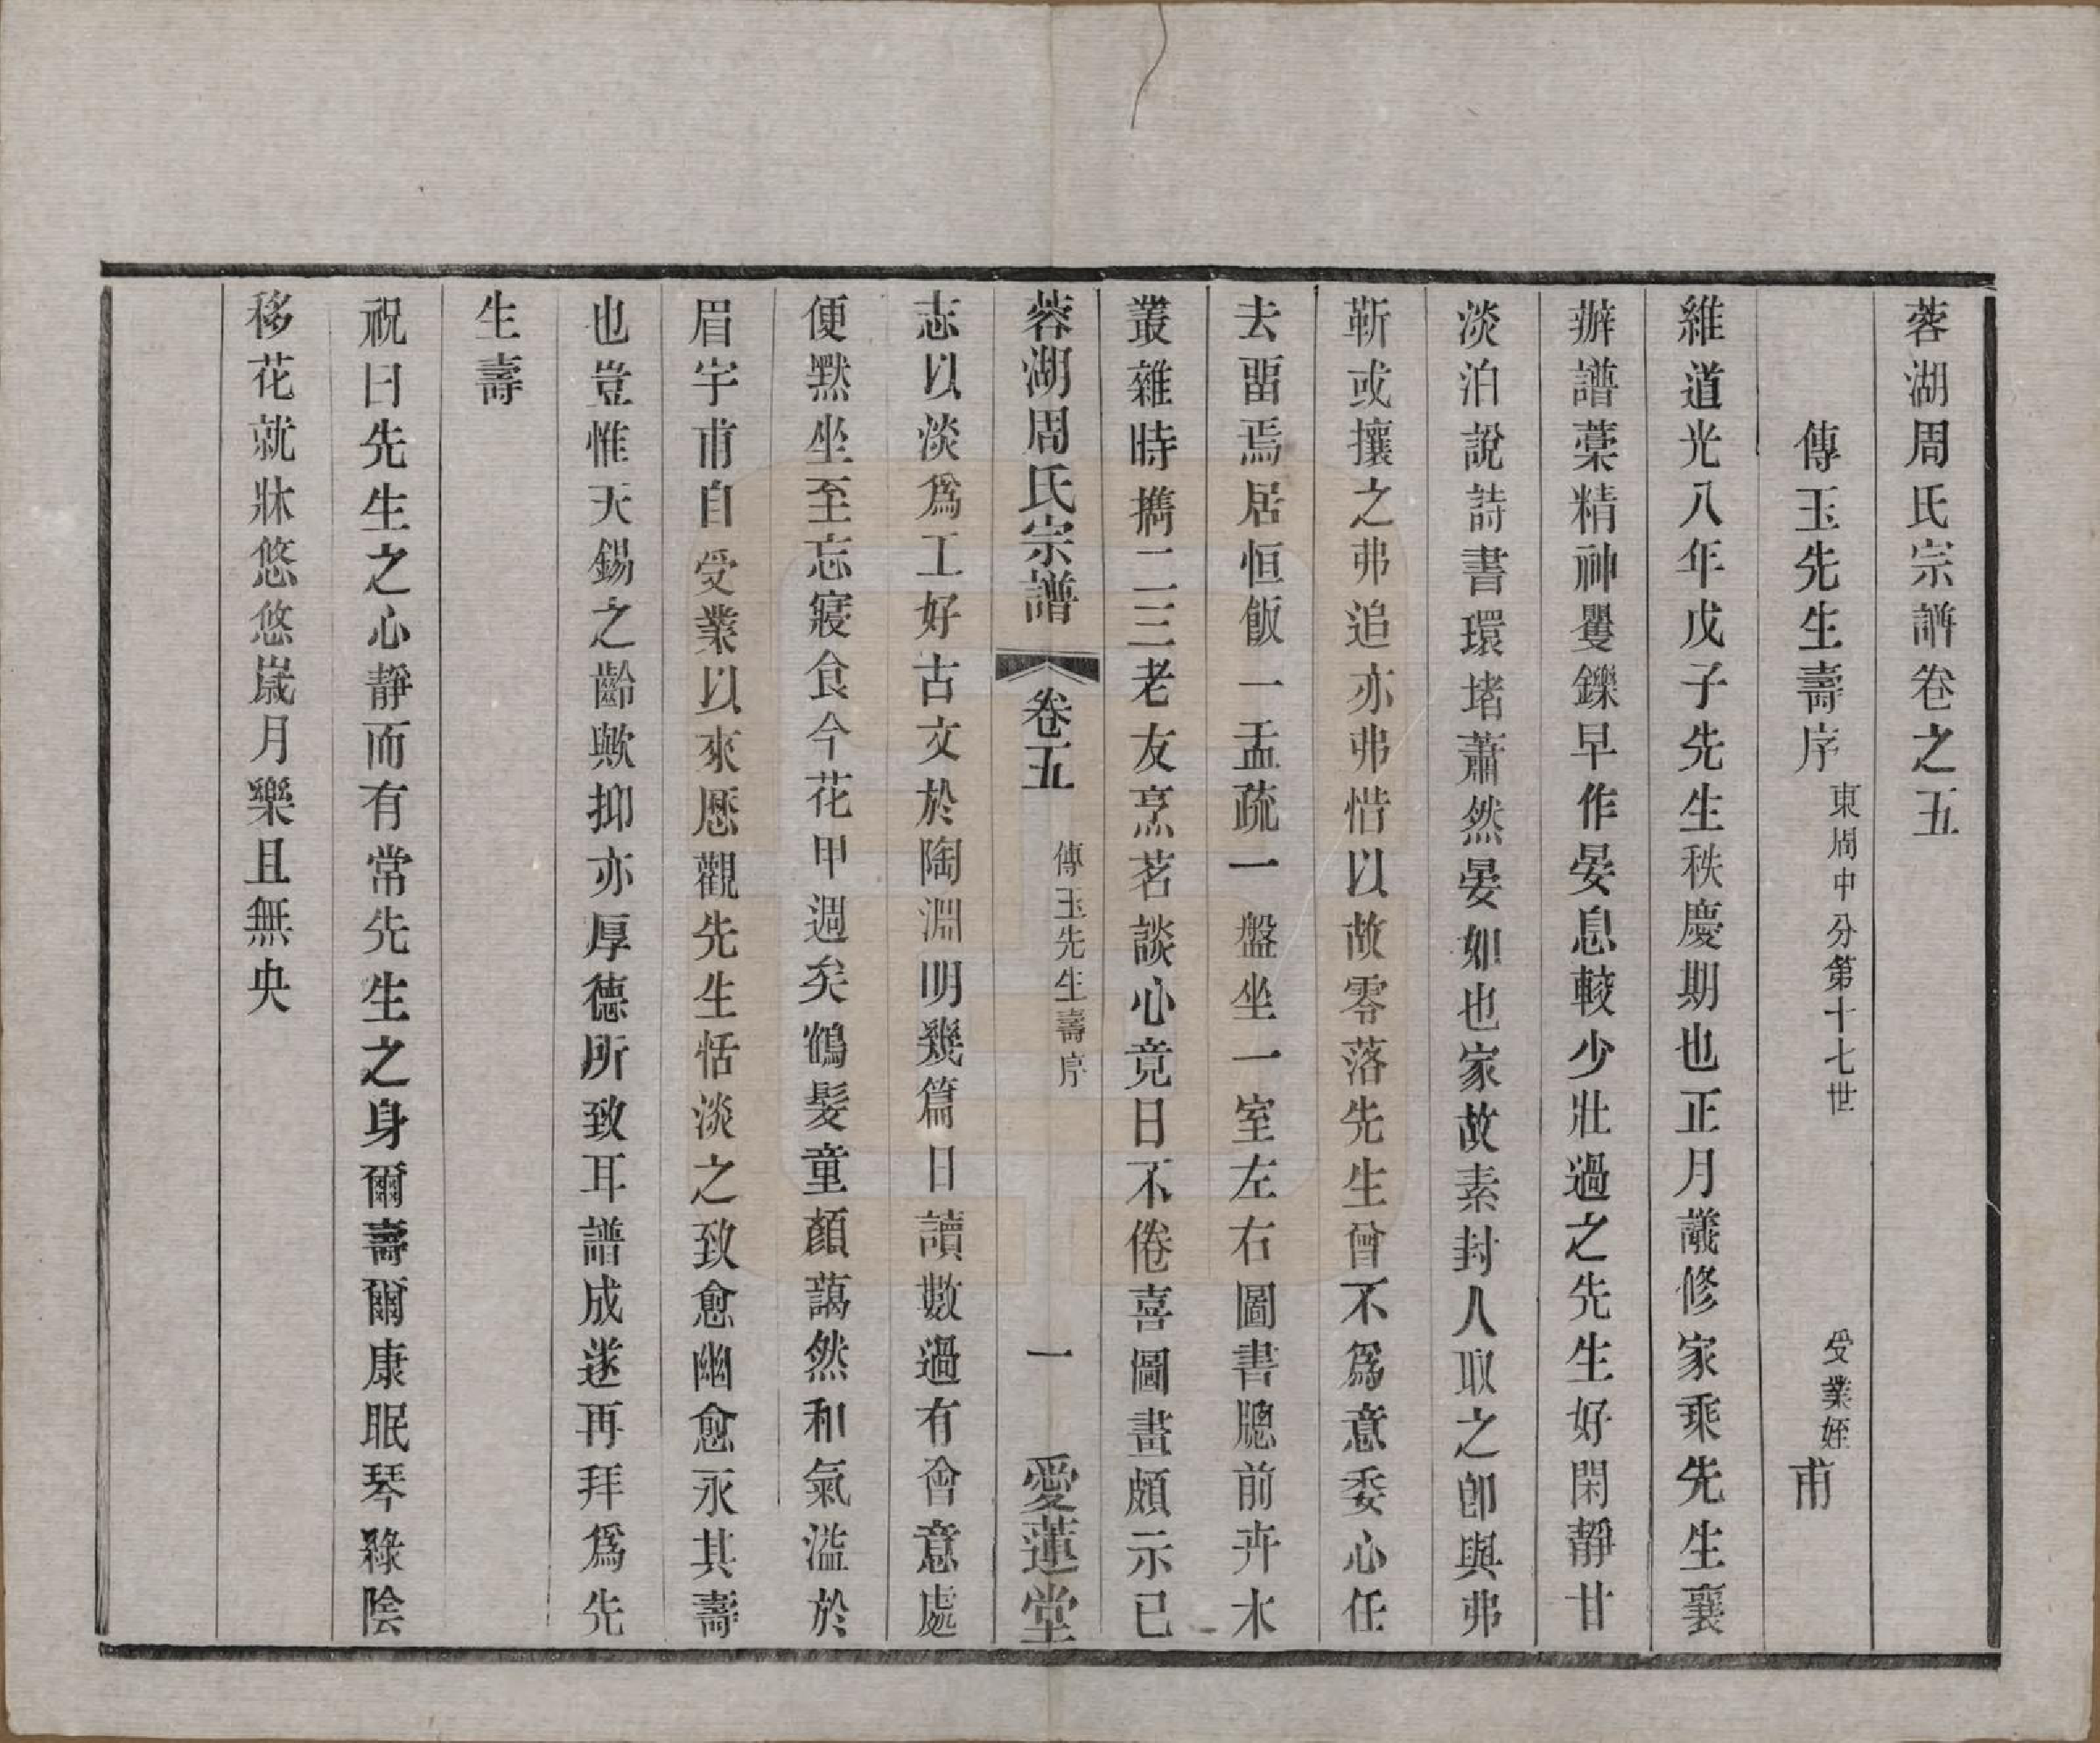 蓉湖周氏宗譜卷之五
傳玉先生壽序 東周申分第十七世 受業姪 甫
維道光八年戊子先生秩慶期也正月議修家乘先生襄
辦譜藁精神矍鑠早作晏息較少壯過之先生好閑靜甘
淡泊說詩書環堵蕭然晏如也家故素封人取之卽與弗
靳或攘之弗追亦弗惜以故零落先生曾不爲意委心任
去畱焉居恒飯一盂疏一盤坐一室左右圖書牕前卉木
叢雜時攜二三老友烹茗談心竟日不倦喜圖畫頗示已
蓉湖周氏宗譜 卷五 傳玉先生壽序 一 愛蓮堂
志以淡爲工好古文於陶淵明幾篇日讀數過有會意處
便默坐至忘寢食今花甲週矣鶴髮童顏藹然和氣溢於
眉宇甫自受業以來歷觀先生恬淡之致愈幽愈永其壽
也豈惟天錫之齡歟抑亦厚德所致耳譜成遂再拜爲先
生壽
祝曰先生之心靜而有常先生之身爾壽爾康眠琴綠陰
移花就牀悠悠嵗月樂且無央